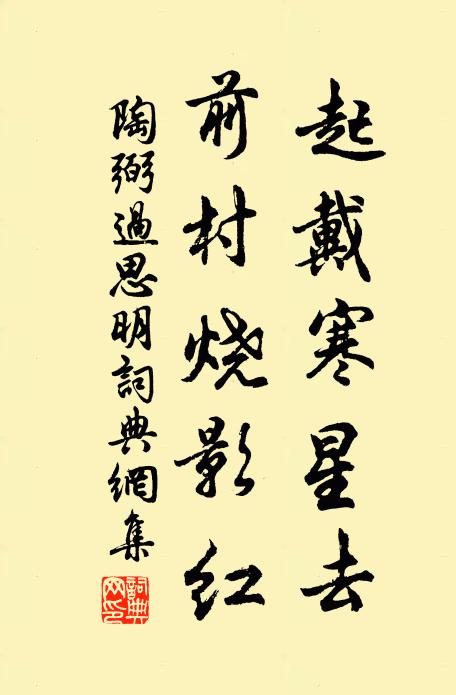 起戴寒星去
前村烧影红
陶弼過思明詞典網集
詞典网印